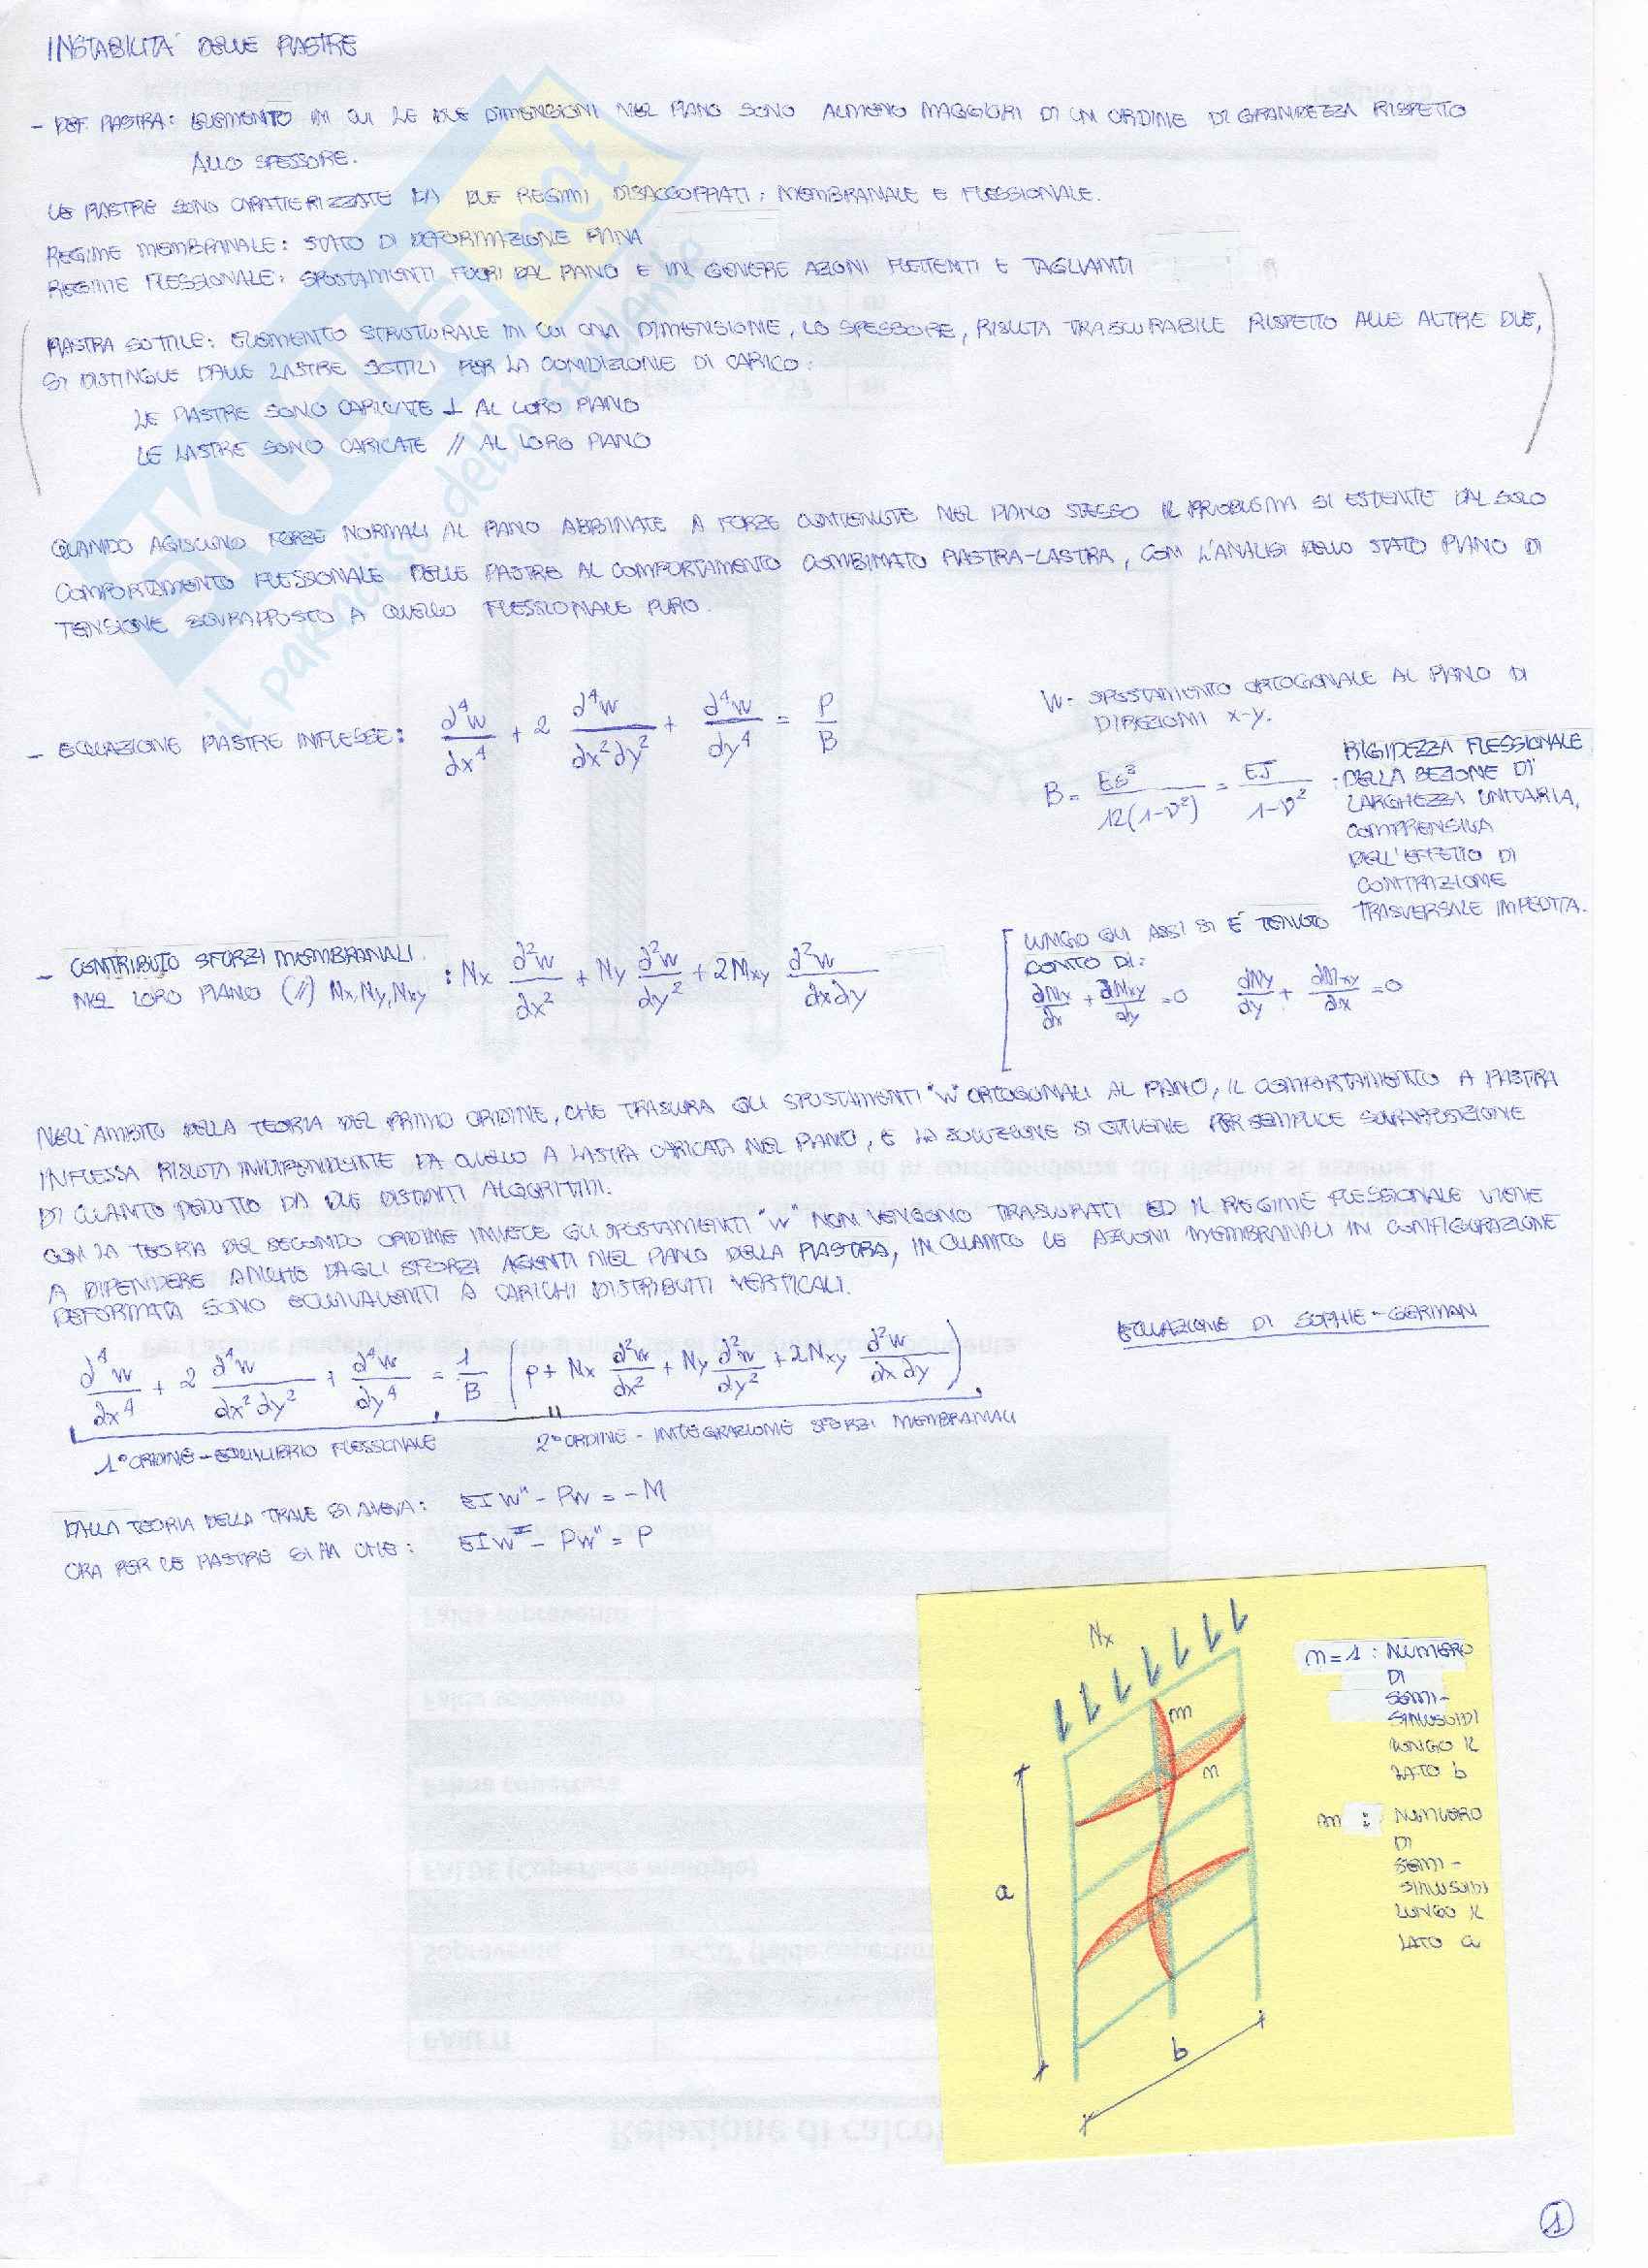 INSTABILITA' DELLE PIASTRE
- DEF. PIASTRA: ELEMENTO IN CUI LE DUE DIMENSIONI NEL PIANO SONO ALMENO MAGGIORI DI UN ORDINE DI GRANDEZZA RISPETTO
ALLO SPESSORE.
LE PIASTRE SONO CARATTERIZZATE DA DUE REGIMI DISACCOPPIATI: MEMBRANALE E FLESSIONALE.
REGIME MEMBRANALE: STATO DI DEFORMAZIONE PIANA
REGIME FLESSIONALE: SPOSTAMENTI FUORI DAL PIANO E IN GENERE AZIONI FLETTENTI E TAGLIANTI
PIASTRA SOTTILE: ELEMENTO STRUTTURALE IN CUI UNA DIMENSIONE, LO SPESSORE, RISULTA TRASCURABILE RISPETTO ALLE ALTRE DUE,
SI DISTINGUE DALLE LASTRE SOTTILI PER LA CONDIZIONE DI CARICO:
LE PIASTRE SONO CARICATE ⊥ AL LORO PIANO
LE LASTRE SONO CARICATE // AL LORO PIANO
QUANDO AGISCONO FORZE NORMALI AL PIANO ABBINATE A FORZE CONTENUTE NEL PIANO STESSO IL PROBLEMA SI ESTENDE DAL SOLO
COMPORTAMENTO FLESSIONALE DELLE PIASTRE AL COMPORTAMENTO COMBINATO PIASTRA-LASTRA, CON L'ANALISI DELLO STATO PIANO DI
TENSIONE SOVRAPPOSTO A QUELLO FLESSIONALE PURO.
- EQUAZIONE PIASTRE INFLESSE: ∂⁴w/∂x⁴ + 2 ∂⁴w/∂x²∂y² + ∂⁴w/∂y⁴ = P/B
W - SPOSTAMENTO ORTOGONALE AL PIANO DI
DIREZIONI X-Y.
B = Es³/12(1-ν²) = EJ/1-ν² : RIGIDEZZA FLESSIONALE
DELLA SEZIONE DI
LARGHEZZA UNITARIA,
COMPRENSIVA
DELL'EFFETTO DI
CONTRAZIONE
TRASVERSALE IMPEDITA.
- CONTRIBUTO SFORZI MEMBRANALI
NEL LORO PIANO (//) Nx, Ny, Nxy : Nx ∂²w/∂x² + Ny ∂²w/∂y² + 2Nxy ∂²w/∂x∂y
LUNGO GLI ASSI SI È TENUTO
CONTO DI:
∂Nx/∂x + ∂Nxy/∂y = 0 ∂Ny/∂y + ∂Nxy/∂x = 0
NELL'AMBITO DELLA TEORIA DEL PRIMO ORDINE, CHE TRASCURA GLI SPOSTAMENTI "W" ORTOGONALI AL PIANO, IL COMPORTAMENTO A PIASTRA
INFLESSA RISULTA INDIPENDENTE DA QUELLO A LASTRA CARICATA NEL PIANO, E LA SOLUZIONE SI OTTIENE PER SEMPLICE SOVRAPPOSIZIONE
DI QUANTO DEDOTTO DA DUE DISTINTI ALGORITMI.
CON LA TEORIA DEL SECONDO ORDINE INVECE GLI SPOSTAMENTI "W" NON VENGONO TRASCURATI ED IL REGIME FLESSIONALE VIENE
A DIPENDERE ANCHE DAGLI SFORZI AGENTI NEL PIANO DELLA PIASTRA, IN QUANTO LE AZIONI MEMBRANALI IN CONFIGURAZIONE
DEFORMATA SONO EQUIVALENTI A CARICHI DISTRIBUITI VERTICALI.
EQUAZIONE DI SOPHIE-GERMAN
∂⁴w/∂x⁴ + 2 ∂⁴w/∂x²∂y² + ∂⁴w/∂y⁴ = 1/B (p + Nx ∂²w/∂x² + Ny ∂²w/∂y² + 2Nxy ∂²w/∂x∂y)
1° ORDINE - EQUILIBRIO FLESSIONALE
2° ORDINE - INTEGRAZIONE SFORZI MEMBRANALI
DALLA TEORIA DELLA TRAVE SI AVEVA: EIW'' - PW = -M
ORA PER LE PIASTRE SI HA CHE: EIWᴵⱽ - PW'' = P
Nx
m
n
a
b
n=1 : NUMERO
DI
SEMI-
SINUSOIDI
LUNGO IL
LATO b
m : NUMERO
DI
SEMI-
SINUSOIDI
LUNGO IL
LATO a
1
SKUOLA.net
il paradiso dello studente